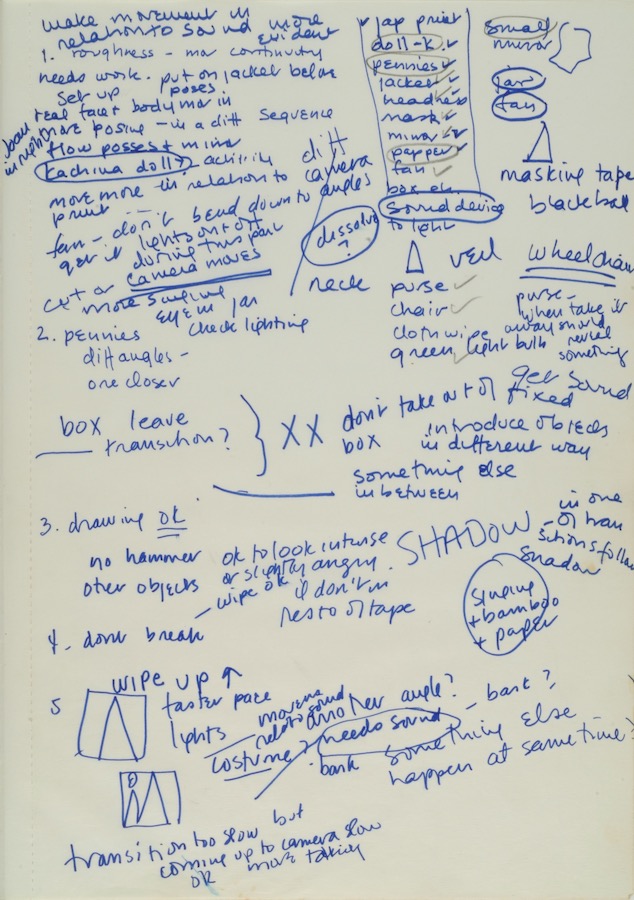 make movement in
relation to sound more
evident
1. roughness - more continuity
needs work. put on jacket before
set up poses
real faces body mor in
more posing - in a diff sequence
flow posses + mirror
kachina doll -
move more in relation to
print
diff
camera
angles
fan - don't bend down to
get it lights on + off
during this part
camera moves
cut or
more singing
eye in jar
check lighting
dissolve
?
neck
2. pennies
diff angles -
one closer
jap print
doll-k.
pennies
jacket
headress
mask
mirror
papper
fan
box
sound device
to light
veil
purse
chair
cloth wipe
green light bulb
small
mirror
jar
fan
masking tape
black ball
wheel draw
purse -
when take it
away should
reveal
something
box leave
transition?
XX
don't take out of
box
fixed
get sound
introduce objects
in different way
something else
in between
3. drawing ok
no hammer
other objects
ok to look intense
or slightly angry.
- wipe ok if don't in
rest of tape
SHADOW
- in one
of tran
sitions follow
shadow
singing
+ bamboo
+ paper
4. dont break
5
wipe up ↑
faster pace
lights
costume?
movem
relato sound
another angle?
needs sound
- bark?
bark
something else
happen at same time?
transition too slow but
coming up to camera slow
ok more talking